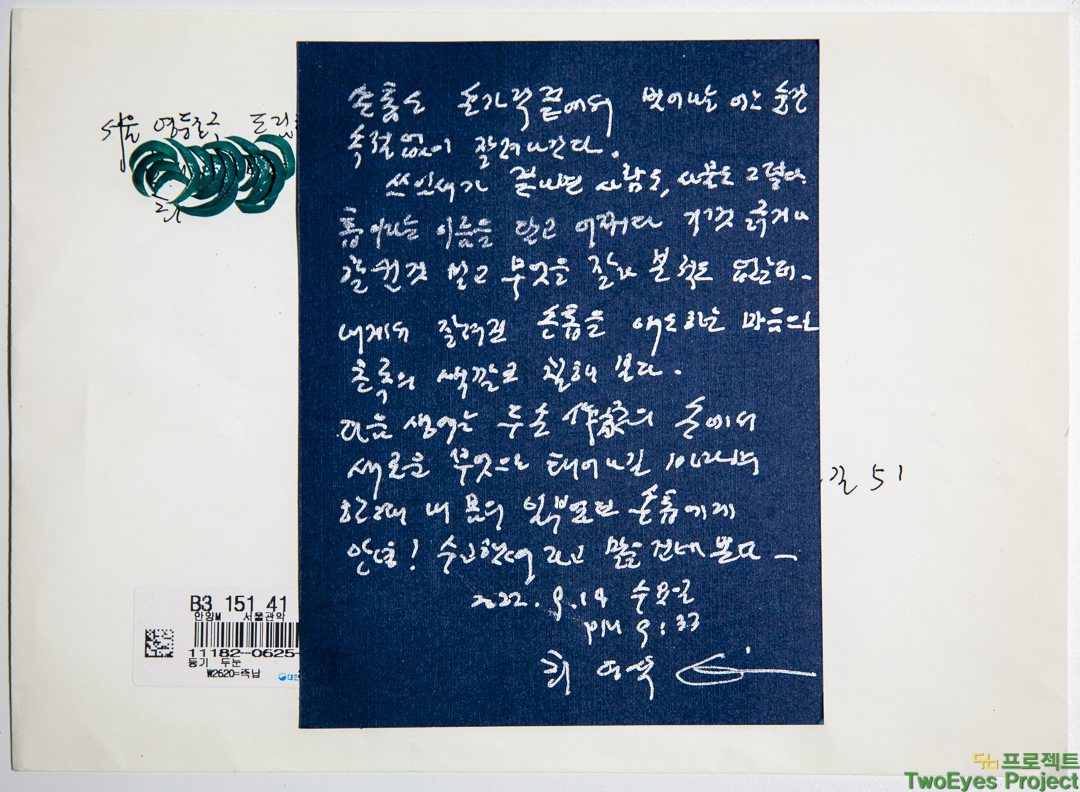 서울 영등포구 도림
손톱은 손가락 끝에서 벗어나는 어느 순간
속절없이 잘려나간다.
쓰임새가 끝나면 사람도, 사물도 그렇다.
톱이라는 이름을 달고 어쩌다 기껏 긁거나
할퀸것 말고 무엇을 잘라 본 적도 없는데.
내게서 잘려진 손톱을 애도하는 마음으로
초록의 색깔로 칠해 본다.
다음 생에는 두눈 作家의 손에서
새로운 무엇으로 태어나길
내 몸의 일부였던 손톱에게
안녕! 수고했어 라고 말을 건네 본다
2022. 9. 14 수요일
PM 9:33
최
길 51
B3 151 41
안양M 서울관악
11182-0625-
등기 두눈
W2620=족남
대한
두눈프로젝트
TwoEyes Project